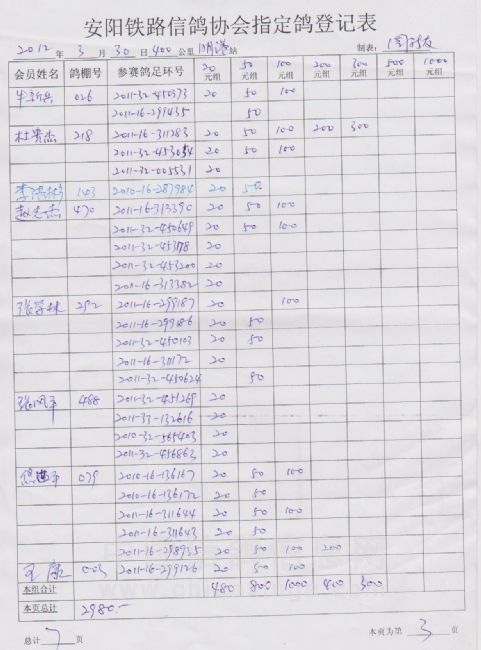 安阳铁路信鸽协会指定鸽登记表
2012 年 3 月 30 日 400 公里 明港 站 制表：
会员姓名 鸽棚号 参赛鸽足环号 20元组 50元组 100元组 200元组 300元组 500元组 1000元组
牛新兵 026 2011-32-450373 20 50 100
2011-16-299435 50
杜贵杰 218 2011-16-311283 20 50 100 200 300
2011-32-453054 20 50 100
2011-32-005531 20
李 143 2010-16-287984 20 50
赵志杰 470 2011-16-313390 20 50 100
2011-32-450649 20 50 100
2011-32-453178 20
2011-32-453200 20
2011-16-313382 20
张学林 292 2011-16-299187 20 100
2011-16-299186 20 50
2011-32-450103 20 50
2011-16-311172 20
2011-32-450624 50
张 488 2011-32-451269 20
2011-33-132616 20
2010-32-565403 20
2011-32-456863 20
079 2010-16-136167 20 50 100
2010-16-136172 20 50
2011-16-311644 20 50 100
2011-16-311643 20 50
2011-16-298935 20 50 100 200
王康 003 2011-16-299126 20 50 100
本组合计 480 800 1000 400 300
本页总计 2980.-
总计 7 页 本页为第 3 页